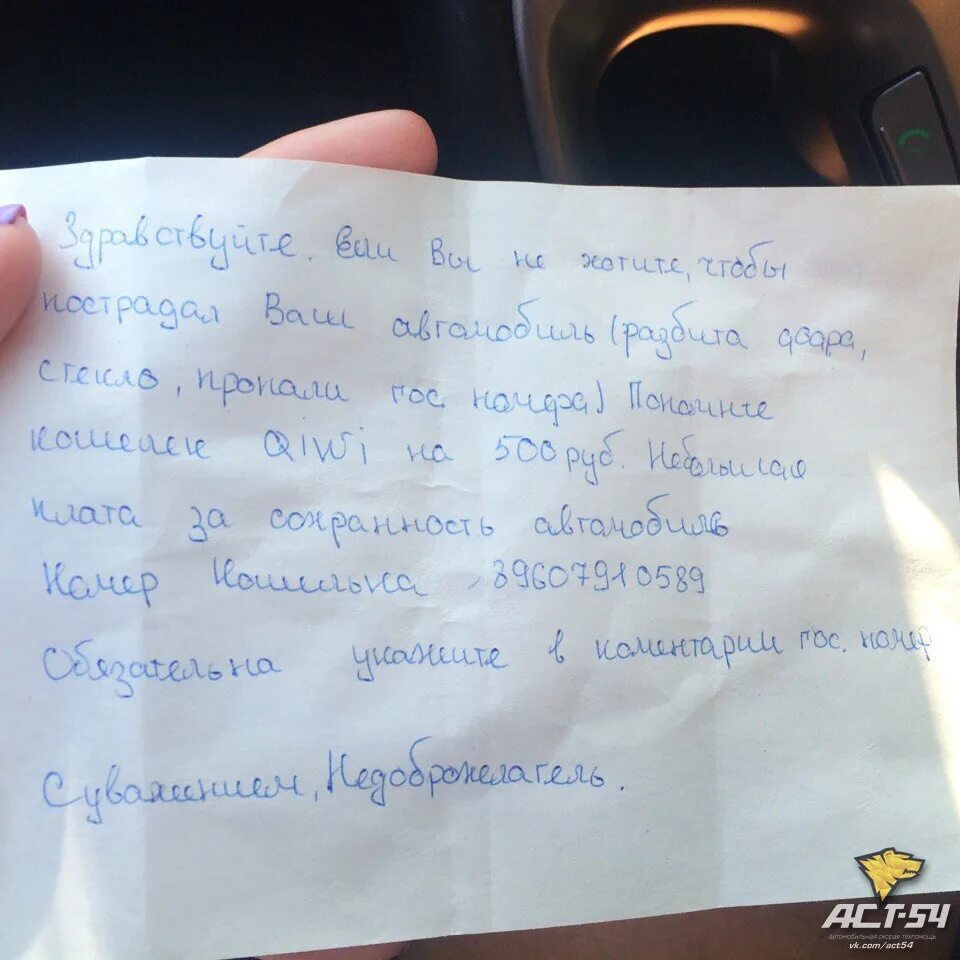 Здравствуйте. Если Вы не хотите, чтобы
пострадал Ваш автомобиль (разбита фара,
стекло, пропали гос. номера) Пополните
кошелек QIWI на 500 руб. Небольшая
плата за сохранность автомобиля
Номер Кошелька 89607910589
Обязательна укажите в коментарии гос. номер
С уважением, Недоброжелатель.
АСТ-54
автомобильная скорая техпомощь
vk.com/act54